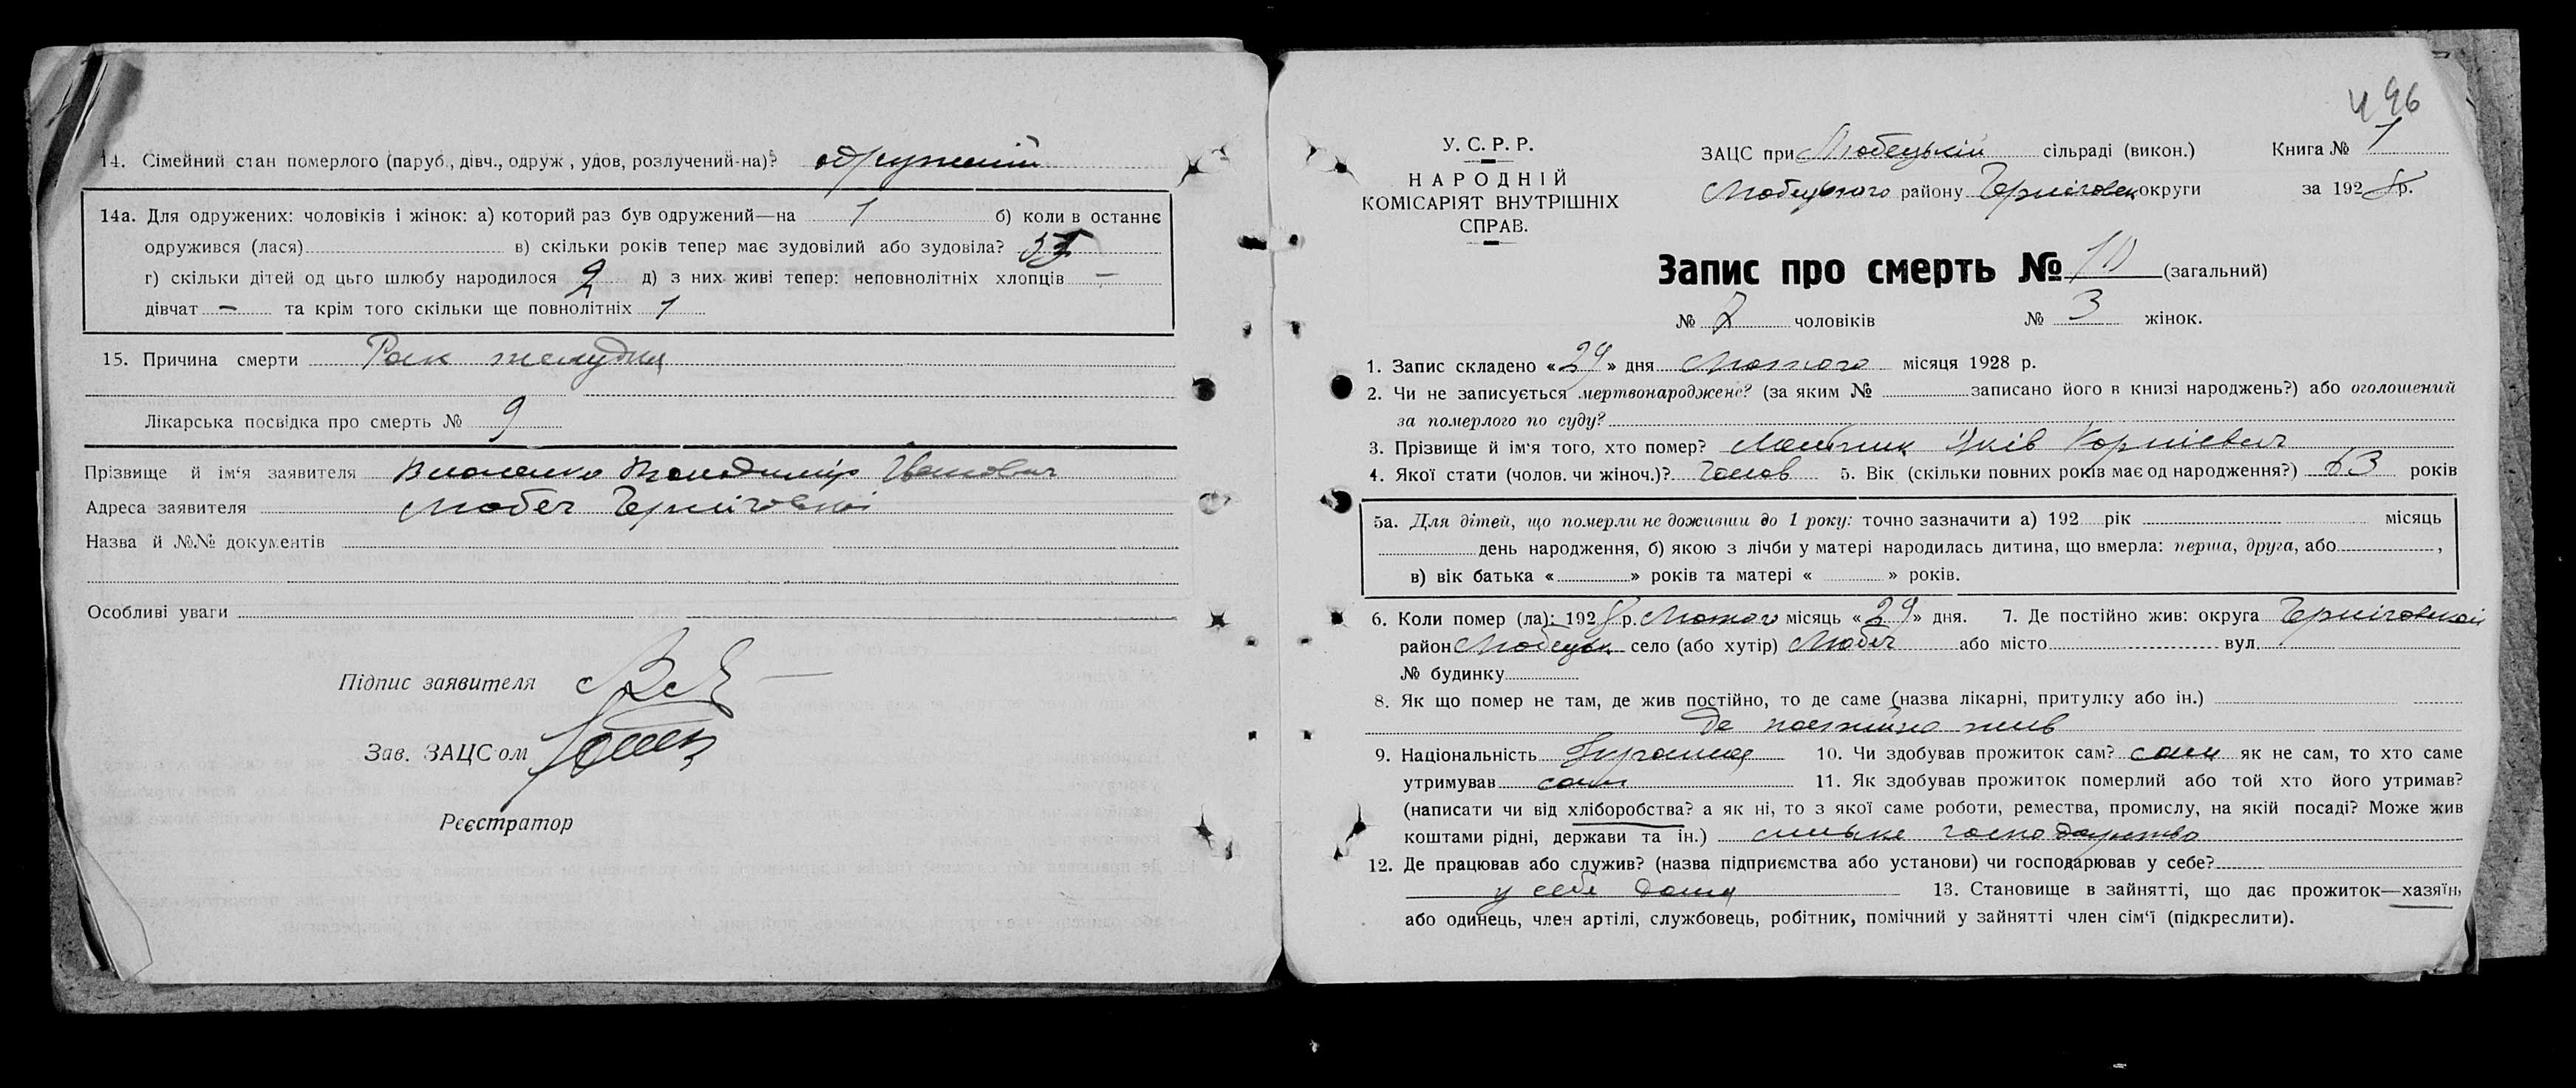 14. Сімейний стан померлого (паруб., дівч., одруж, удов, розлучений-на)? одружений
14а. Для одружених: чоловіків і жінок: а) которий раз був одружений—на 1 б) коли в останнє
одружився (лася) в) скільки років тепер має зудовілий або зудовіла?
г) скільки дітей од цьго шлюбу народилося 2 д) з них живі тепер: неповнолітніх хлопців —
дівчат — та крім того скільки ще повнолітніх 1
15. Причина смерти Рак желудка
Лікарська посвідка про смерть № 9
Прізвище й ім'я заявителя Володимір Іванович
Адреса заявителя Любеч Чернігівської
Назва й №№ документів
Особливі уваги
Підпис заявителя
Зав. ЗАЦС'ом
Реєстратор
496
У. С. Р. Р.
НАРОДНІЙ
КОМІСАРІЯТ ВНУТРІШНІХ
СПРАВ.
ЗАЦС при Любецькій сільраді (викон.) Книга № 1
Любецького району Чернігівськ округи за 1928 р.
Запис про смерть № 10 (загальний)
№ 7 чоловіків № 3 жінок.
1. Запис складено «29» дня Лютого місяця 1928 р.
2. Чи не записується мертвонароджене? (за яким № записано його в книзі народжень?) або оголошений
за померлого по суду?
3. Прізвище й ім'я того, хто помер? Яків Корнієвич
4. Якої стати (чолов. чи жіноч.)? Чолов 5. Вік (скільки повних років має од народження?) 63 років
5а. Для дітей, що померли не доживши до 1 року: точно зазначити а) 192 рік місяць
день народження, б) якою з лічби у матері народилась дитина, що вмерла: перша, друга, або ,
в) вік батька « » років та матері « » років.
6. Коли помер (ла): 1928 р. Лютого місяць «29» дня. 7. Де постійно жив: округа Чернігівської
район Любецьк село (або хутір) Любеч або місто вул.
№ будинку
8. Як що помер не там, де жив постійно, то де саме (назва лікарні, притулку або ін.)
де постійно жив
9. Національність 10. Чи здобував прожиток сам? сам як не сам, то хто саме
утримував сам 11. Як здобував прожиток померлий або той хто його утримав?
(написати чи від хліборобства? а як ні, то з якої саме роботи, ремества, промислу, на якій посаді? Може жив
коштами рідні, держави та ін.) сільське господарство
12. Де працював або служив? (назва підприємства або установи) чи господарював у себе?
у себе дома 13. Становище в зайнятті, що дає прожиток—хазяїн,
або одинець, член артілі, службовець, робітник, помічний у зайнятті член сім'ї (підкреслити).